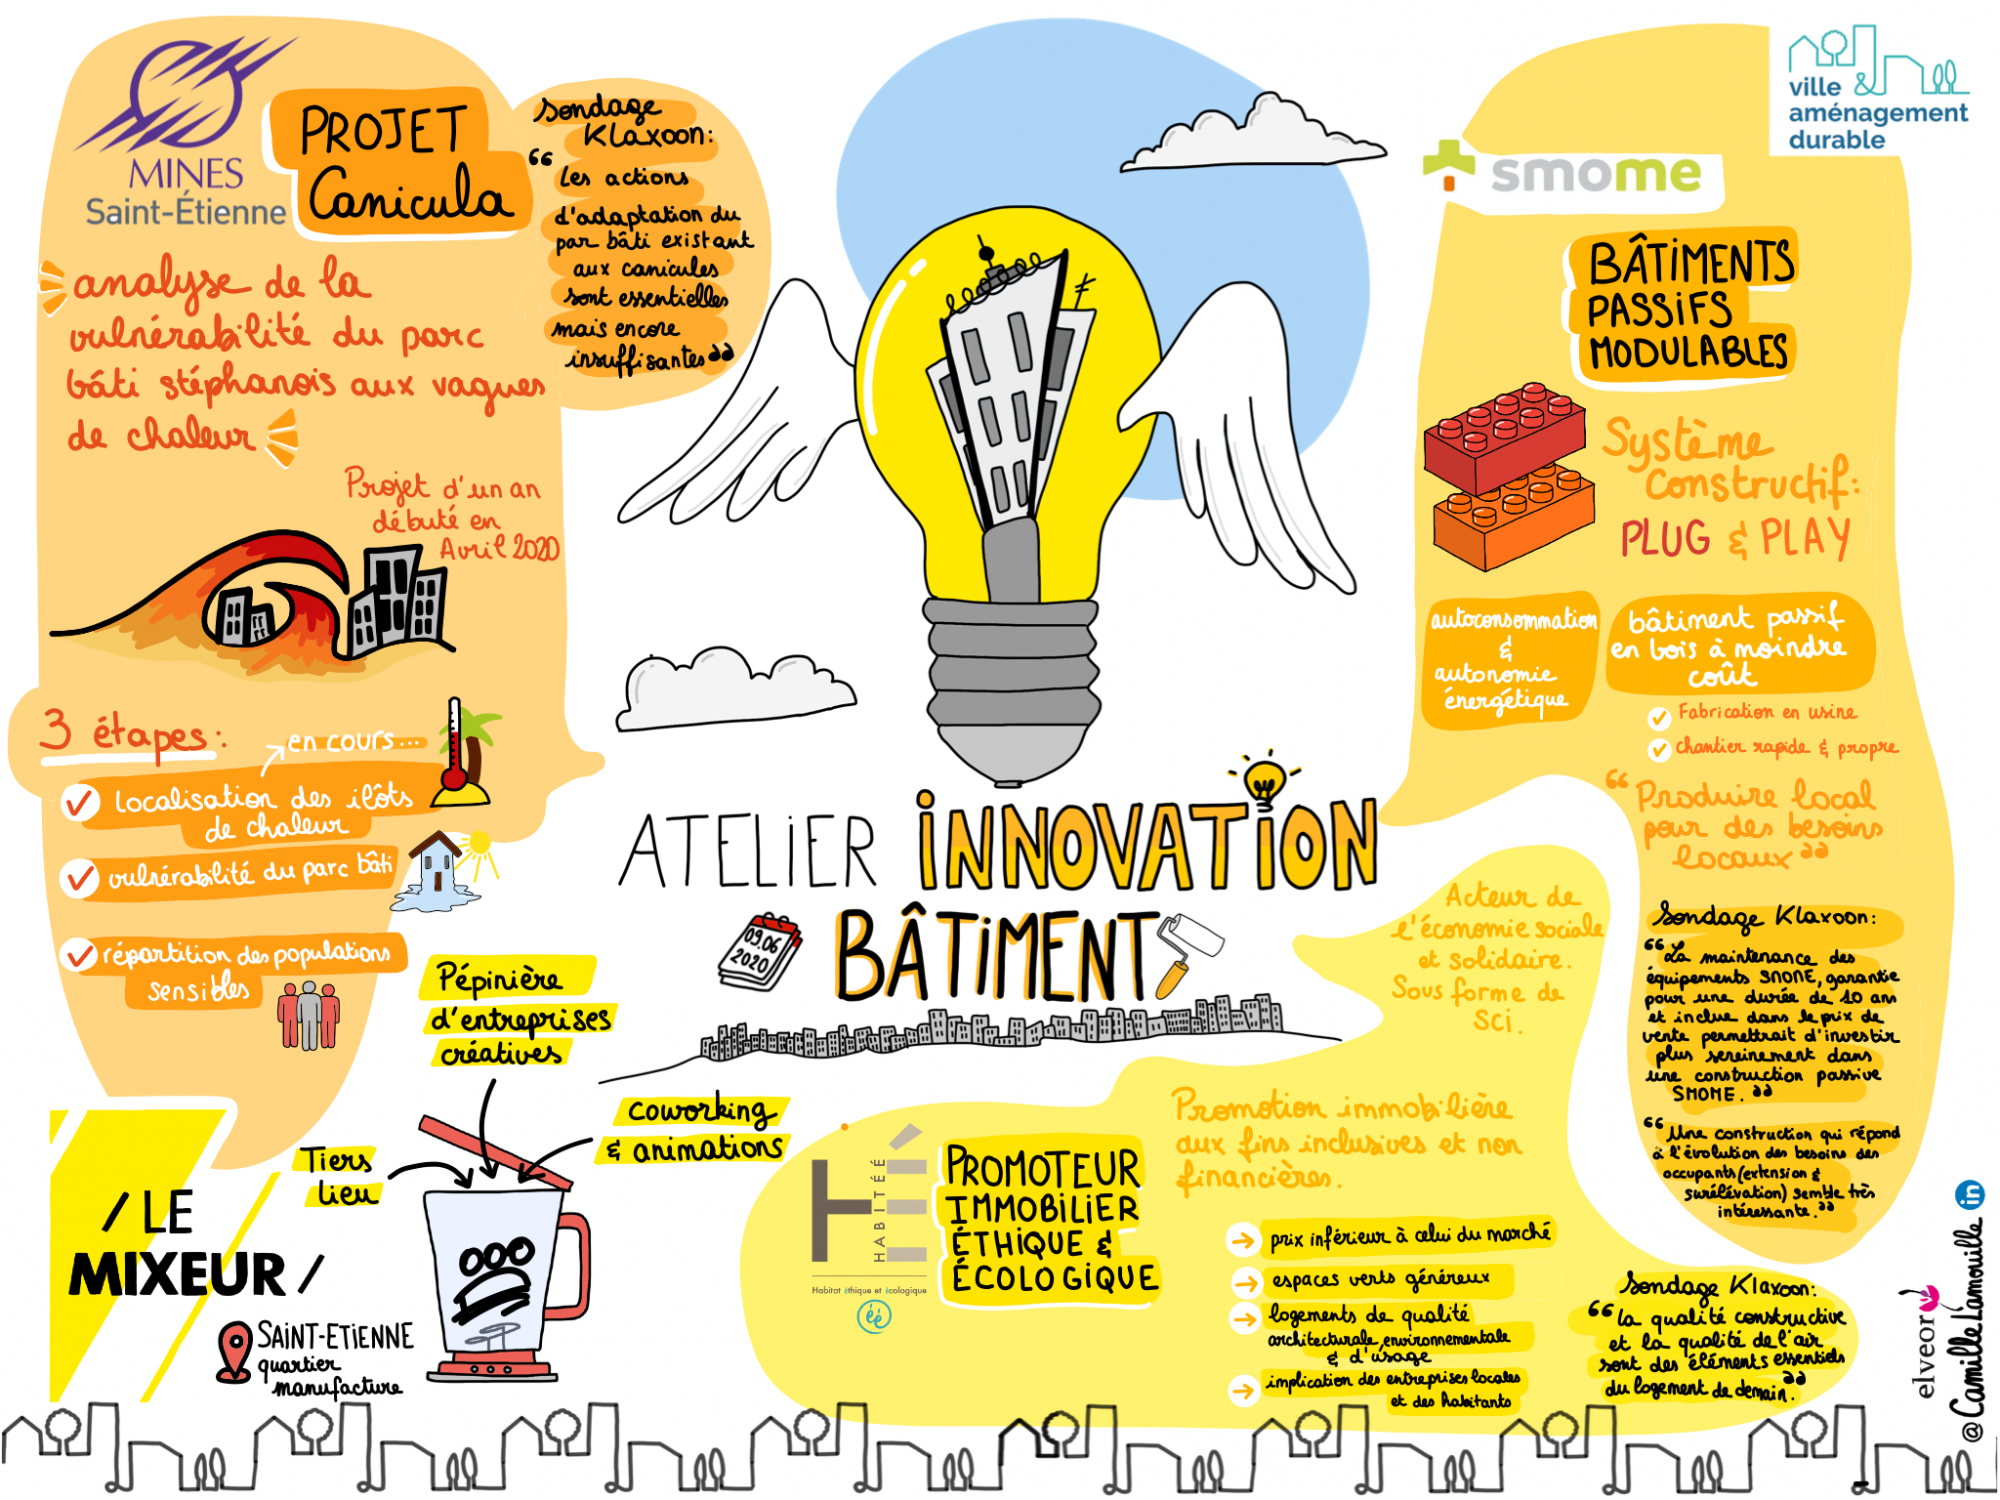 MINES
Saint-Étienne
PROJET
Canicula
analyse de la
vulnérabilité du parc
bâti stéphanois aux vagues
de chaleur
Projet d'un an
débuté en
Avril 2020
3 étapes:
en cours...
localisation des ilôts
de chaleur
vulnérabilité du parc bâti
répartition des populations
sensibles
Sondage
Klaxoon:
“ Les actions
d'adaptation du
par bâti existant
aux canicules
sont essentielles
mais encore
insuffisantes ”
ATELIER INNOVATION
09.06
2020
BÂTIMENT
/ LE
MIXEUR /
SAINT-ETIENNE
quartier
manufacture
Tiers
lieu
Pépinière
d'entreprises
créatives
coworking
& animations
HABITÉÉ
Habitat éthique et écologique
éé
PROMOTEUR
IMMOBILIER
ÉTHIQUE &
ÉCOLOGIQUE
Acteur de
l'économie sociale
et solidaire.
Sous forme de
SCI.
Promotion immobilière
aux fins inclusives et non
financières.
prix inférieur à celui du marché
espaces verts généreux
logements de qualité
architecturale, environnementale
& d'usage
implication des entreprises locales
et des habitants
Sondage Klaxoon:
“ la qualité constructive
et la qualité de l'air
sont des éléments essentiels
du logement de demain. ”
ville &
aménagement
durable
smome
BÂTIMENTS
PASSIFS
MODULABLES
Système
Constructif:
PLUG & PLAY
autoconsommation
&
autonomie
énergétique
bâtiment passif
en bois à moindre
coût
Fabrication en usine
chantier rapide & propre
“ Produire local
pour des besoins
locaux ”
Sondage Klaxoon:
“ La maintenance des
équipements SMOME, garantie
pour une durée de 10 ans
et inclue dans le prix de
vente permettrait d'investir
plus sereinement dans
une construction passive
SMOME. ”
“ Une construction qui répond
à l'évolution des besoins des
occupants (extension &
surélévation) semble très
intéressante. ”
elveor
@Camille Lamouille in